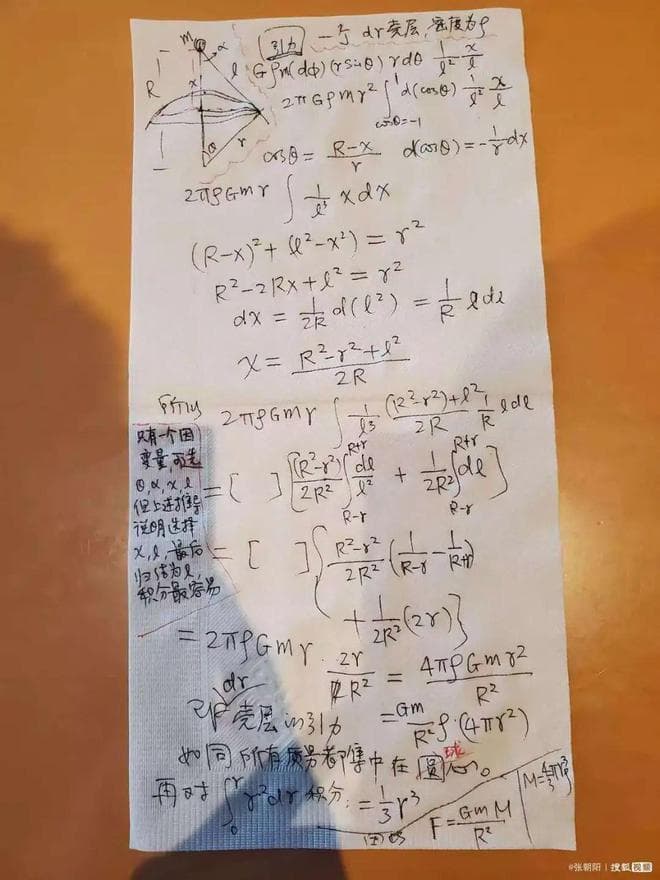 引力 一个 dr 壳层, 密度为ρ
m
α
R
x
l
θ
r
Gρm(dφ)(r sinθ) r dθ 1/l² x/l
2πGρmr² ∫_{cosθ=-1}^{1} d(cosθ) 1/l² x/l
cosθ = (R-x)/r d(cosθ) = -1/r dx
2πρGmr ∫ 1/l³ x dx
(R-x)² + (l²-x²) = r²
R²-2Rx+l² = r²
dx = 1/2R d(l²) = 1/R l dl
x = (R²-r²+l²)/2R
所以 2πρGmr ∫ 1/l³ ((R²-r²)+l²)/2R 1/R l dl
只有一个因
变量,可选
θ,α,x,l
但上述推导
说明选择
x,l,最后
归结为l,
积分最容易
= [ ] [(R²-r²)/2R² ∫_{R-r}^{R+r} dl/l² + 1/2R² ∫_{R-r}^{R+r} dl]
= [ ] { (R²-r²)/2R² (1/(R-r) - 1/(R+r))
+ 1/2R² (2r) }
= 2πρGmr · 2r/R² = 4πρGmr²/R²
dr
壳层的引力 = Gm/R² ρ·(4πr²)
如同所有质量都集中在圆球心。
再对 ∫_0^r r²dr 积分: = 1/3 r³
F = GmM/R²
M = 4π/3 r³ρ
@张朝阳 | 搜狐视频